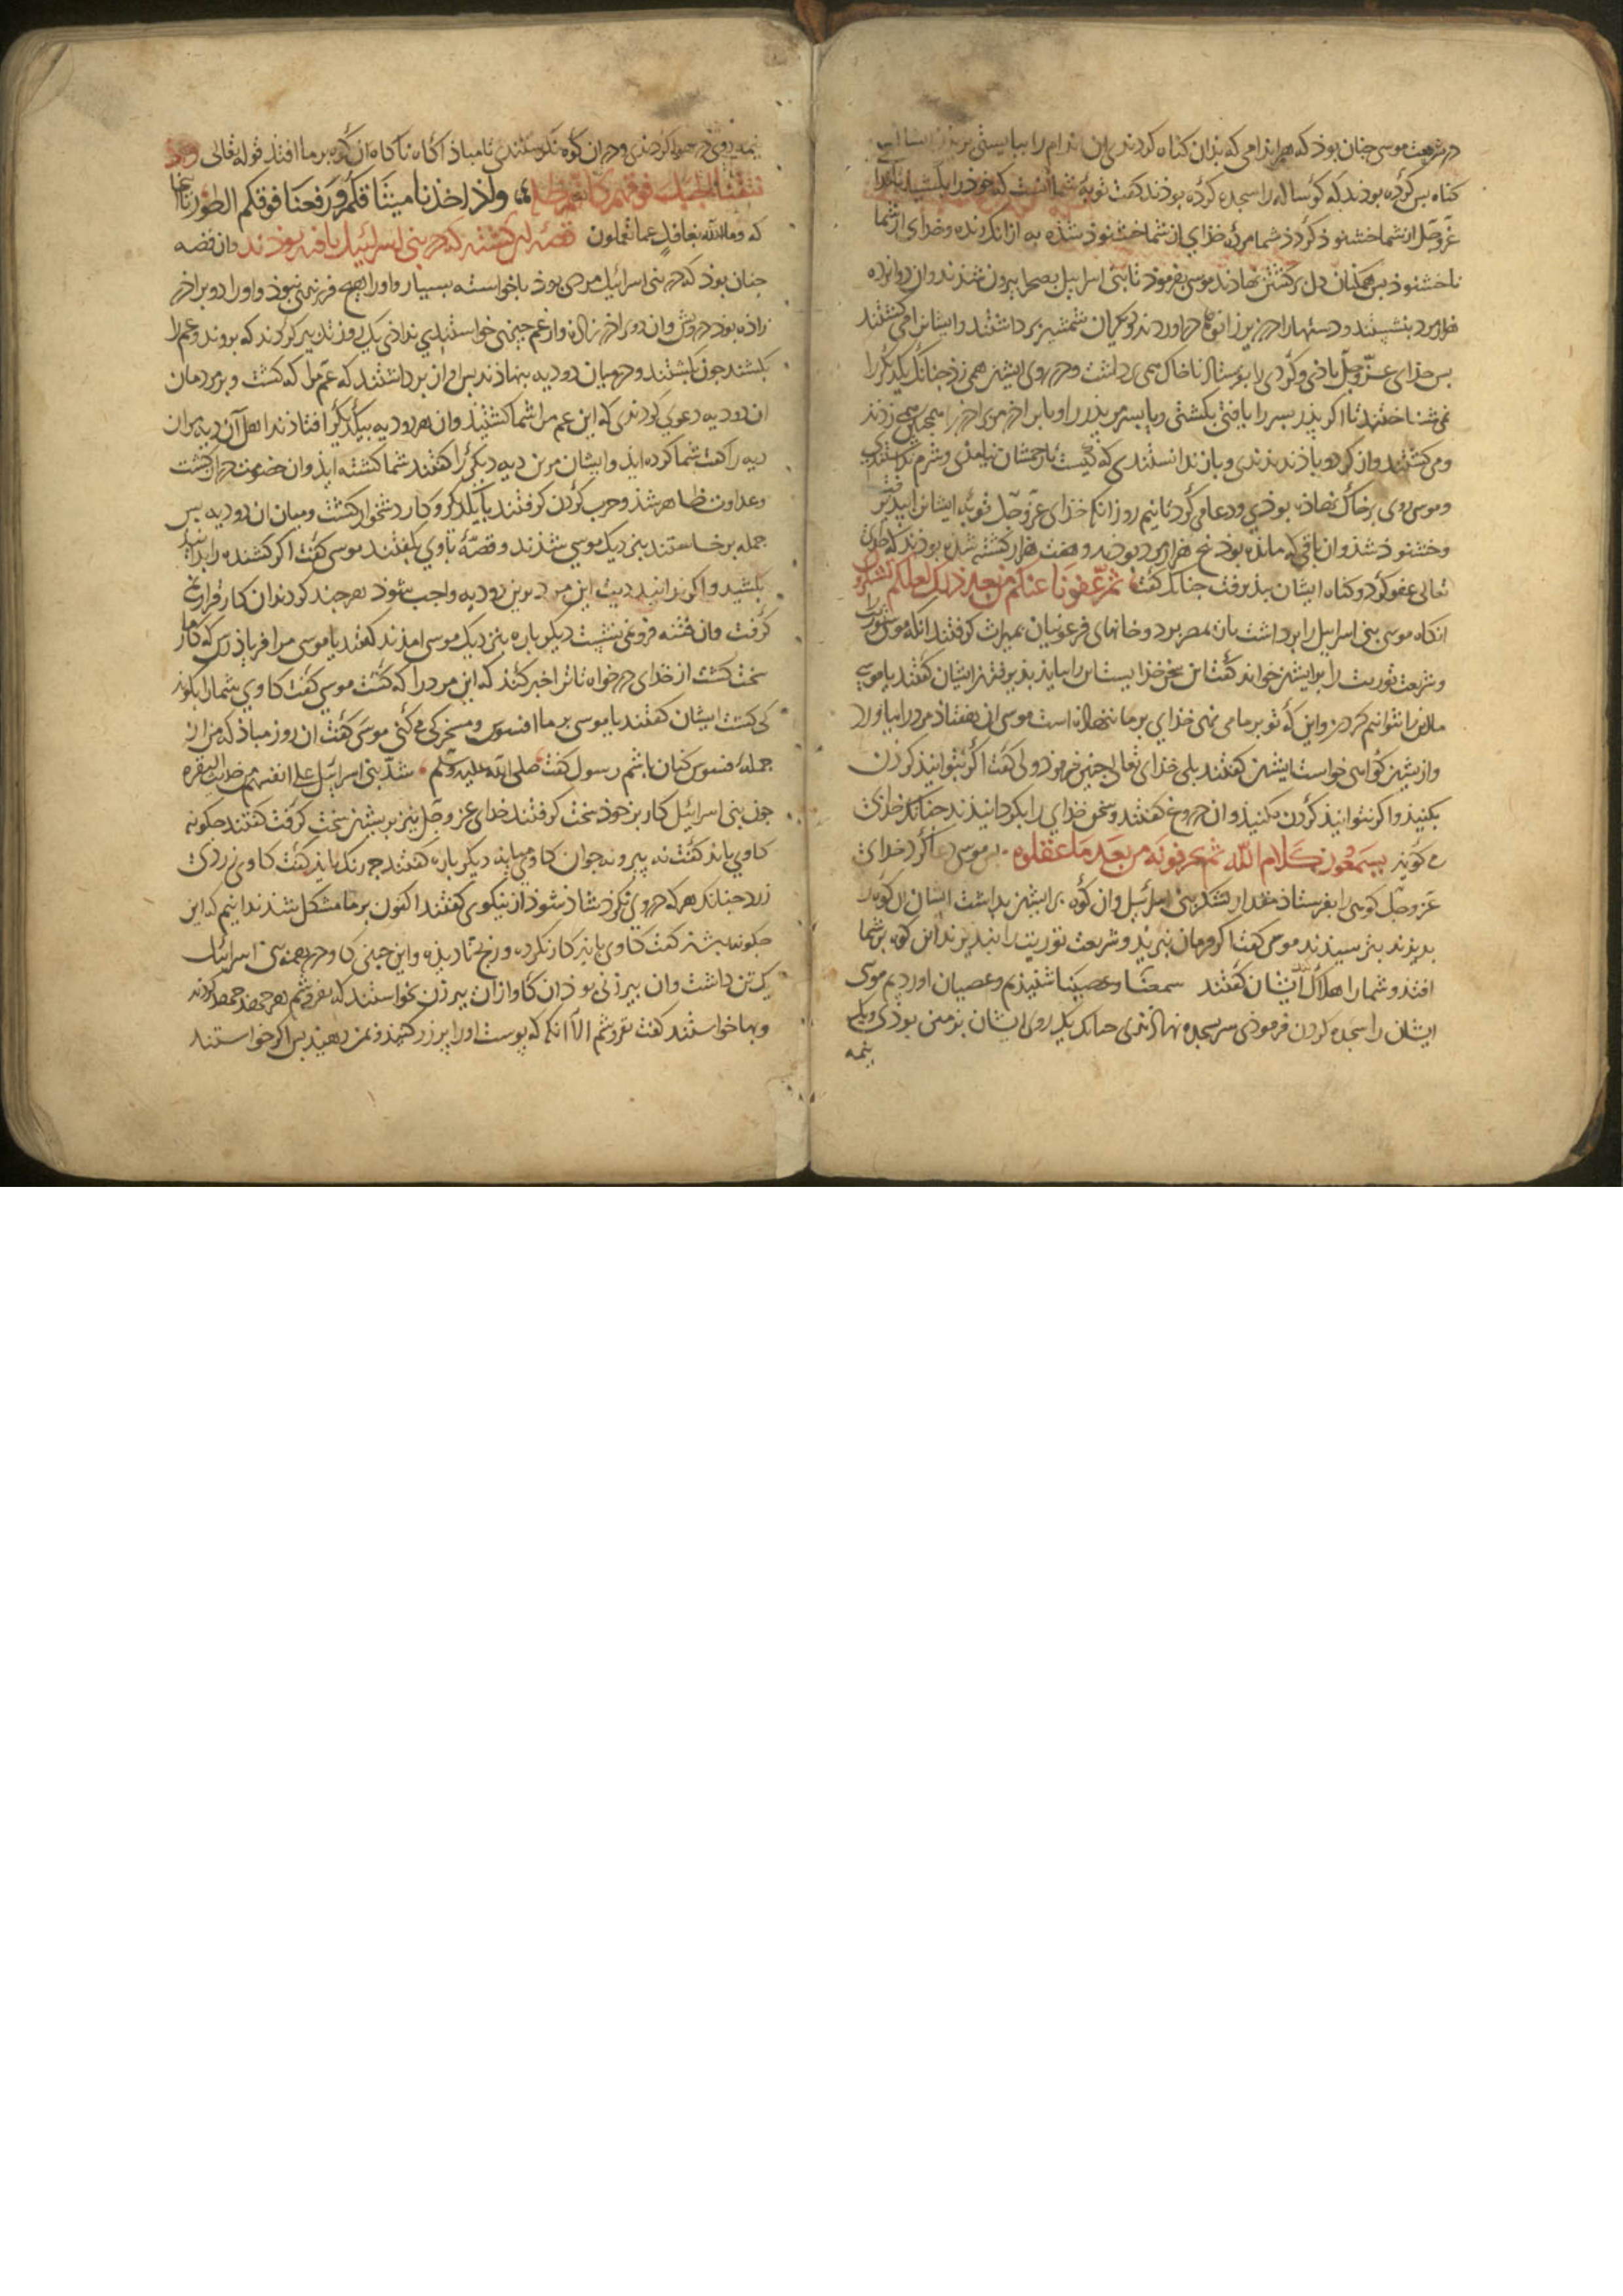 در شریعت موسی جنان بوذ که هر اندامی که بذان کناه کردندی این اندام را ببایستی
کناه بس کرده بوذند که کوساله را سجده کرده بوذند کفت توبهٔ شما آنست که خوذ را بکشید تا خدا
عزوجل از شما خشنوذ کردذ شما مرده خذای از شما خشنوذ شذه به از انک زنده و خذای از شما
ناخشنوذ بس همکنان دل بر کشتن نهاذند موسی بفرموذ تا بنی اسراییل بصحرا بیرون شذند وان دوانزده
هزار مرد بنشستند و دستها را در زیر زانو در اوردند و دیکران شمشیر بر داشتند و ایشانرا می کشتند
بس خذای عزوجل باذی و کردی را بفرستاذ تا خاک همی برداشت و در روی ایشان همی زد جنانک یکدیکر را
نمی شناختند تا اکر بذر بسر را یافتی بکشتی و یا بسر مر بذر را و یا براذر مر براذر را همجنین می زدند
و می کشتند وان کرد و باذ ندیذندی و باز ندانستندی که کیست تا رحمشان نیامذی و شرم نداشتندی
و موسی روی بر خاک نهاذه بوذی و دعا می کرد تا نیم روز انکه خذای عزوجل توبهٔ ایشانرا ببذیرفت
و خشنوذ شذ وان باقی که مانده بوذ بنج هزار مرد بوذند و هفت هزار کشته شذه بوذند که خذای
تعالی عفو کرد و کناه ایشان بذیرفت جنانک کفت ثم عفونا عنکم من بعد ذلک لعلکم تشکرون
انکاه موسی بنی اسراییل را برداشت باز بمصر برد و خانهای فرعونیان بمیراث کرفتند انکه موسی توریت
و شریعت توریت را بر ایشان خواند کفت این سخن خذایست این را بباید بذیرفتن ایشان کفتند یا موسی
ما این را نتوانیم کردن و این که تو بر ما می نهی خذای بر ما ننهاذه است موسی ان هفتاذ مرد را بیاورد
و از یشان کواهی خواست ایشان کفتند بلی خذای تعالی جنین فرموذ ولی کفت اکر بتوانید کردن
بکنید و اکر نتوانید کردن مکنید وان دروغ کفتند و سخن خذای را بکردانیذند جنانک خذای
می کوید یسمعون کلام الله ثم یحرفونه من بعد ما عقلوه بس موسی دعا کرد خدای
عزوجل کوهی را بفرستاذ مقدار لشکر بنی اسرائیل وان کوه بر ایشان بداشت ایشان ان کوه را
بدیذند بترسیذند موسی کفت اکر فرمان نبرید و شریعت توریت را نبذیرند این کوه بر شما
افتد و شما را هلاک کند ایشان کفتند سمعنا و عصینا شنیذیم و عصیان اوردیم موسی
ایشان را سجده کردن فرموذی سر بسجده نهاذندی جنانک یک روی ایشان بر زمین بوذی و یک
نیمه
نیمه روی در سجود کردندی و در ان کوه نکرستندی تا مباذ اکاه ناکاه ان کوه بر ما افتد قوله تعالی و اذ
نتقنا الجبل فوقهم کانه ظلة و اذ اخذنا میثاقکم و رفعنا فوقکم الطور تا انجا
که و ما الله بغافل عما تعملون قصهٔ ان کشته که در بنی اسرائیل یافته بوذند وان قصه
جنان بوذ که در بنی اسرائیل مردی بوذ با خواسته بسیار و او را هیچ فرزندی نبوذ و او را دو براذر
زاده بوذ درویش وان دو براذر زاده از عم جیزی خواستندی نداذی یک روز تدبیر کردند که بروند و عم را
بکشند جون بکشتند و در میان دو دیه بنهاذند بس اواز برداشتند که عم مرا که کشت و بر مردمان
ان دو دیه دعوی کردندی که این عم مرا شما کشتید وان هر دو دیه بیکدیکر افتاذند اهل آن دیه مر ان
دیه را کفت شما کرده ایذ و ایشان مرین دیه دیکر را کفتند شما کشته ایذ وان خصومت دراز کشت
و عداوت ظاهر شذ و حرب کردن کرفتند با یکدیکر و کار دشخوار کشت و میان ان دو دیه بس
جمله برخاستند بنزدیک موسی شذند و قصه با وی بکفتند موسی کفت اکر کشنده را بدانید
بکشید و اکر ندانید دیت این مرد برین دو دیه واجب شوذ هر جند کردند ان کار قرار نمی
کرفت وان فتنه فرو نمی نشست دیکر باره بنزدیک موسی امذند کفتند یا موسی مرا فریاذ رس که کار ما
سخت کشت از خذای درخواه تا ترا خبر کند که این مرد را که کشت موسی کفت کاوی شما را بکوید
کی کشت ایشان کفتند یا موسی بر ما افسوس و مسخرکی می کنی موسی کفت ان روز مباذ که من از
جمله فسوس کنان باشم رسول کفت صلی الله علیه وسلم شدد بنی اسرائیل علی انفسهم
جون بنی اسرائیل کار بر خوذ سخت کرفتند خدای عزوجل نیز بریشان سخت کرفت کفتند جکونه
کاوی باید کفت نه پیر و نه جوان کاو میانه دیکر باره کفتند جه رنک باید کفت کاوی زردی
زرد جنانک هر که در وی نکرد شاذ شوذ از نیکوی کفتند اکنون بر ما مشکل شد ندانیم که این
جکونه باشد کفت کاوی باید کار نکرده و رنج نادیذه و این جنین کاو در همه بنی اسرائیل
یک تن داشت وان پیر زنی بوذ ان کاو از ان پیر زن بخواستند که بفروشم هر جند جهد کردند
و بها خواستند کفت نفروشم الا انکه که پوست او را پر زر کنید و بمن دهید بس اکر خواستند